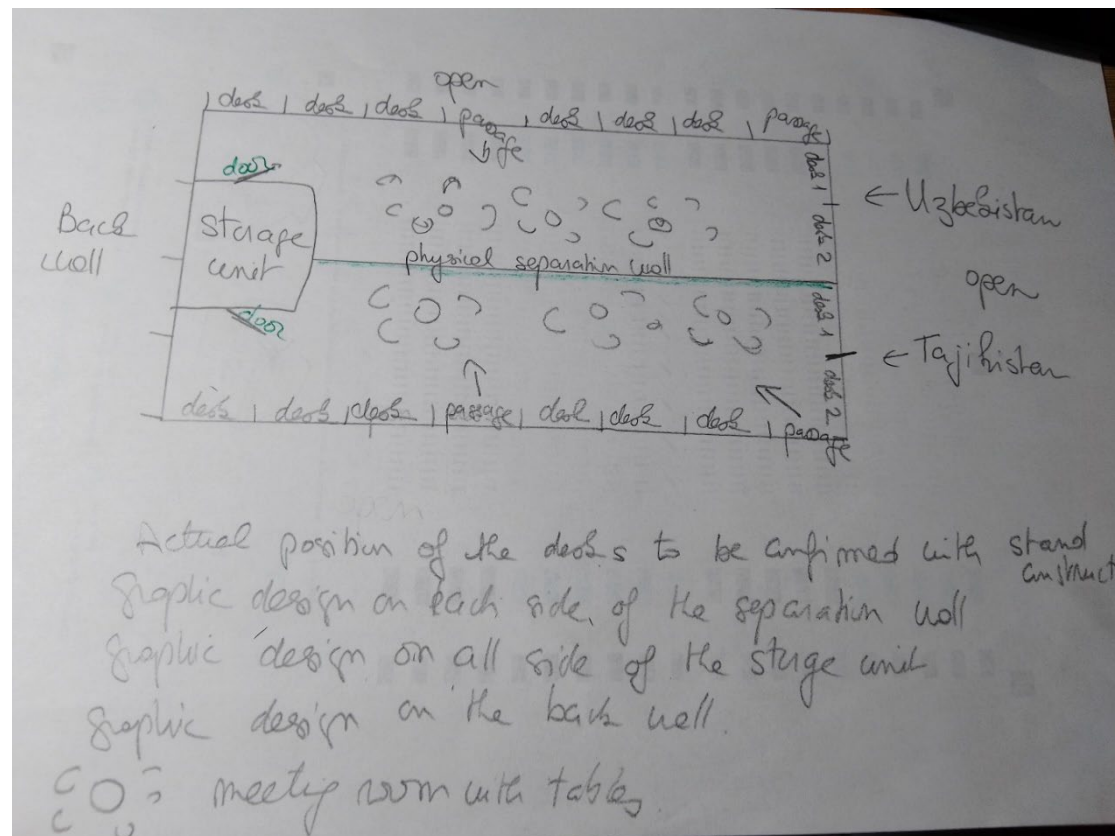 open
desk desk desk passage desk desk desk passage
door
Back wall
storage unit
physical separation wall
desk 1
desk 2
desk 1
desk 2
← Uzbekistan
open
← Tajikistan
door
desk desk desk passage desk desk desk passage
Actual position of the desks to be confirmed with stand construct
graphic design on each side of the separation wall
graphic design on all side of the storage unit
graphic design on the back wall.
meeting room with tables